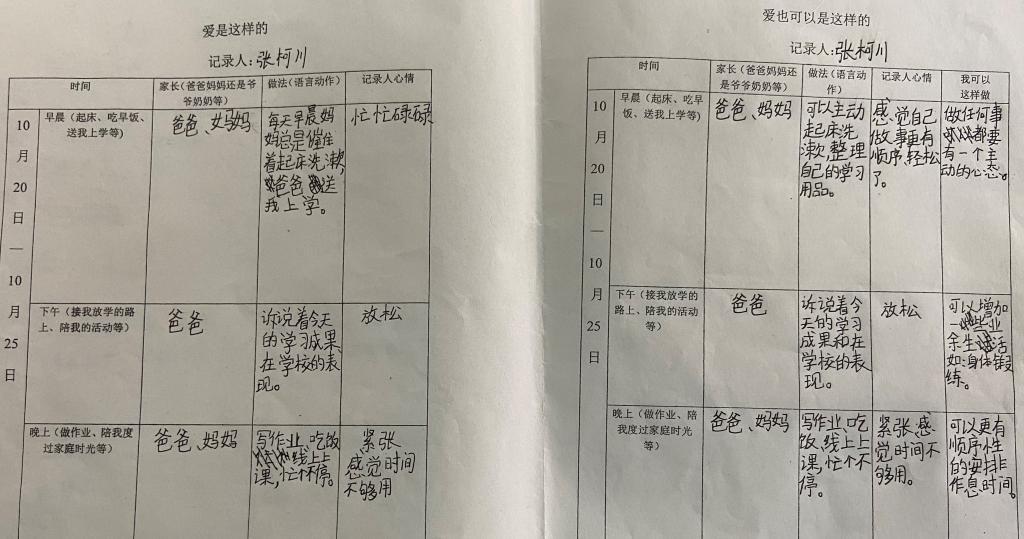 爱是这样的
记录人:张柯川
时间
家长(爸爸妈妈还是爷
爷奶奶等)
做法(语言动作)
记录人心情
10
月
20
日
—
10
月
25
日
早晨(起床、吃早饭、
送我上学等)
爸爸、妈妈
每天早晨妈
妈总是催住
着起床洗漱,
爸爸送
我上学。
忙忙碌碌
下午(接我放学的路
上、陪我的活动等)
爸爸
诉说着今天
的学习成果
在学校的表
现。
放松
晚上(做作业、陪我度
过家庭时光等)
爸爸、妈妈
写作业、吃饭
线上上
课,忙个不停。
紧张
感觉时间
不够用
爱也可以是这样的
记录人:张柯川
时间
家长(爸爸妈妈还
是爷爷奶奶等)
做法(语言动
作)
记录人心情
我可以
这样做
10
月
20
日
—
10
月
25
日
早晨(起床、吃早
饭、送我上学等)
爸爸、妈妈
可以主动
起床洗
漱,整理
自己的学习
用品。
感觉自己
做事更有
顺序,轻松
了。
做任何事
都要
有一个主
动的心态。
下午(接我放学的
路上、陪我的活动
等)
爸爸
诉说着今
天的学习
成果和在
学校的表
现。
放松
可以增加
一些业
余生活
如:身体锻
练。
晚上(做作业、陪
我度过家庭时光
等)
爸爸、妈妈
写作业、吃
饭、线上上
课,忙个不
停。
紧张,感
觉时间不
够用。
可以更有
顺序性
的安排
作息时间。